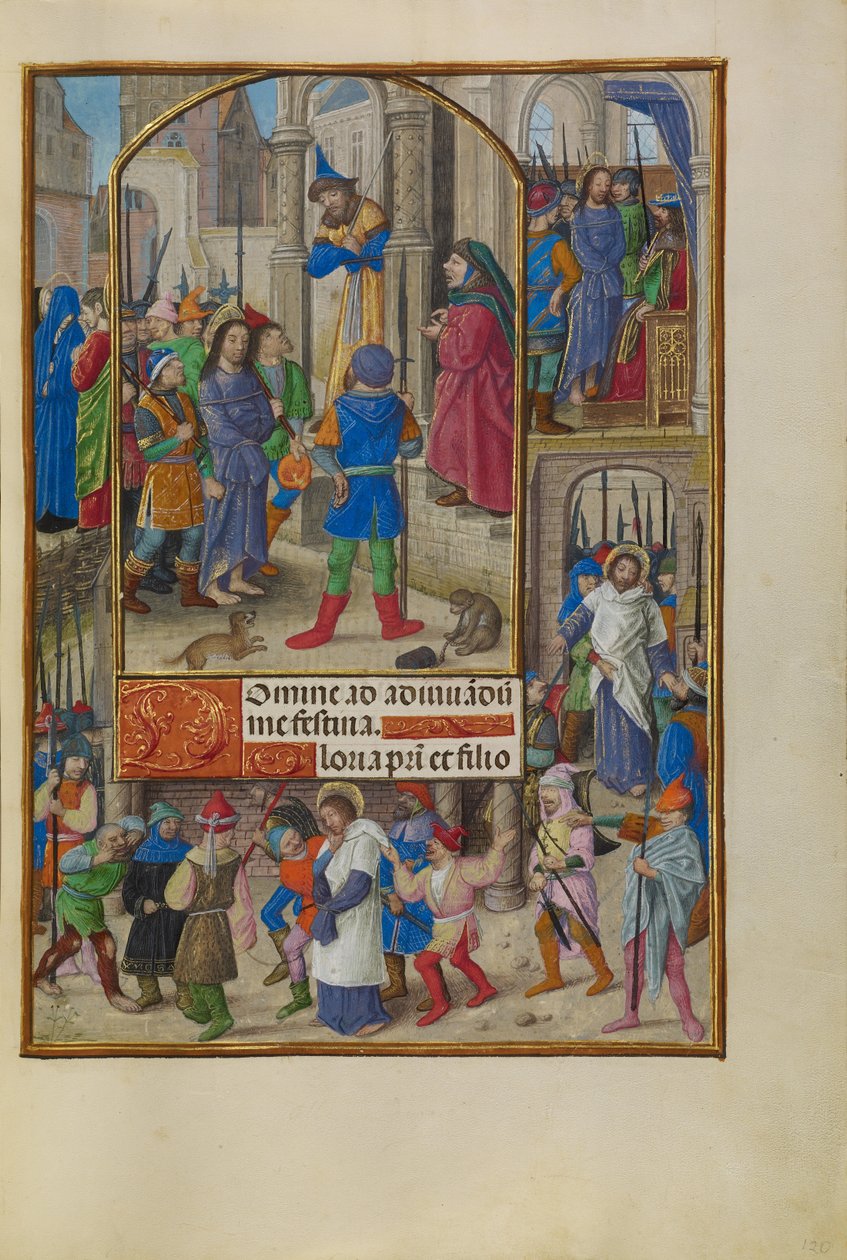 Domine ad adiuuãdũ
me festina.
Gloria pr̃i et filio
120